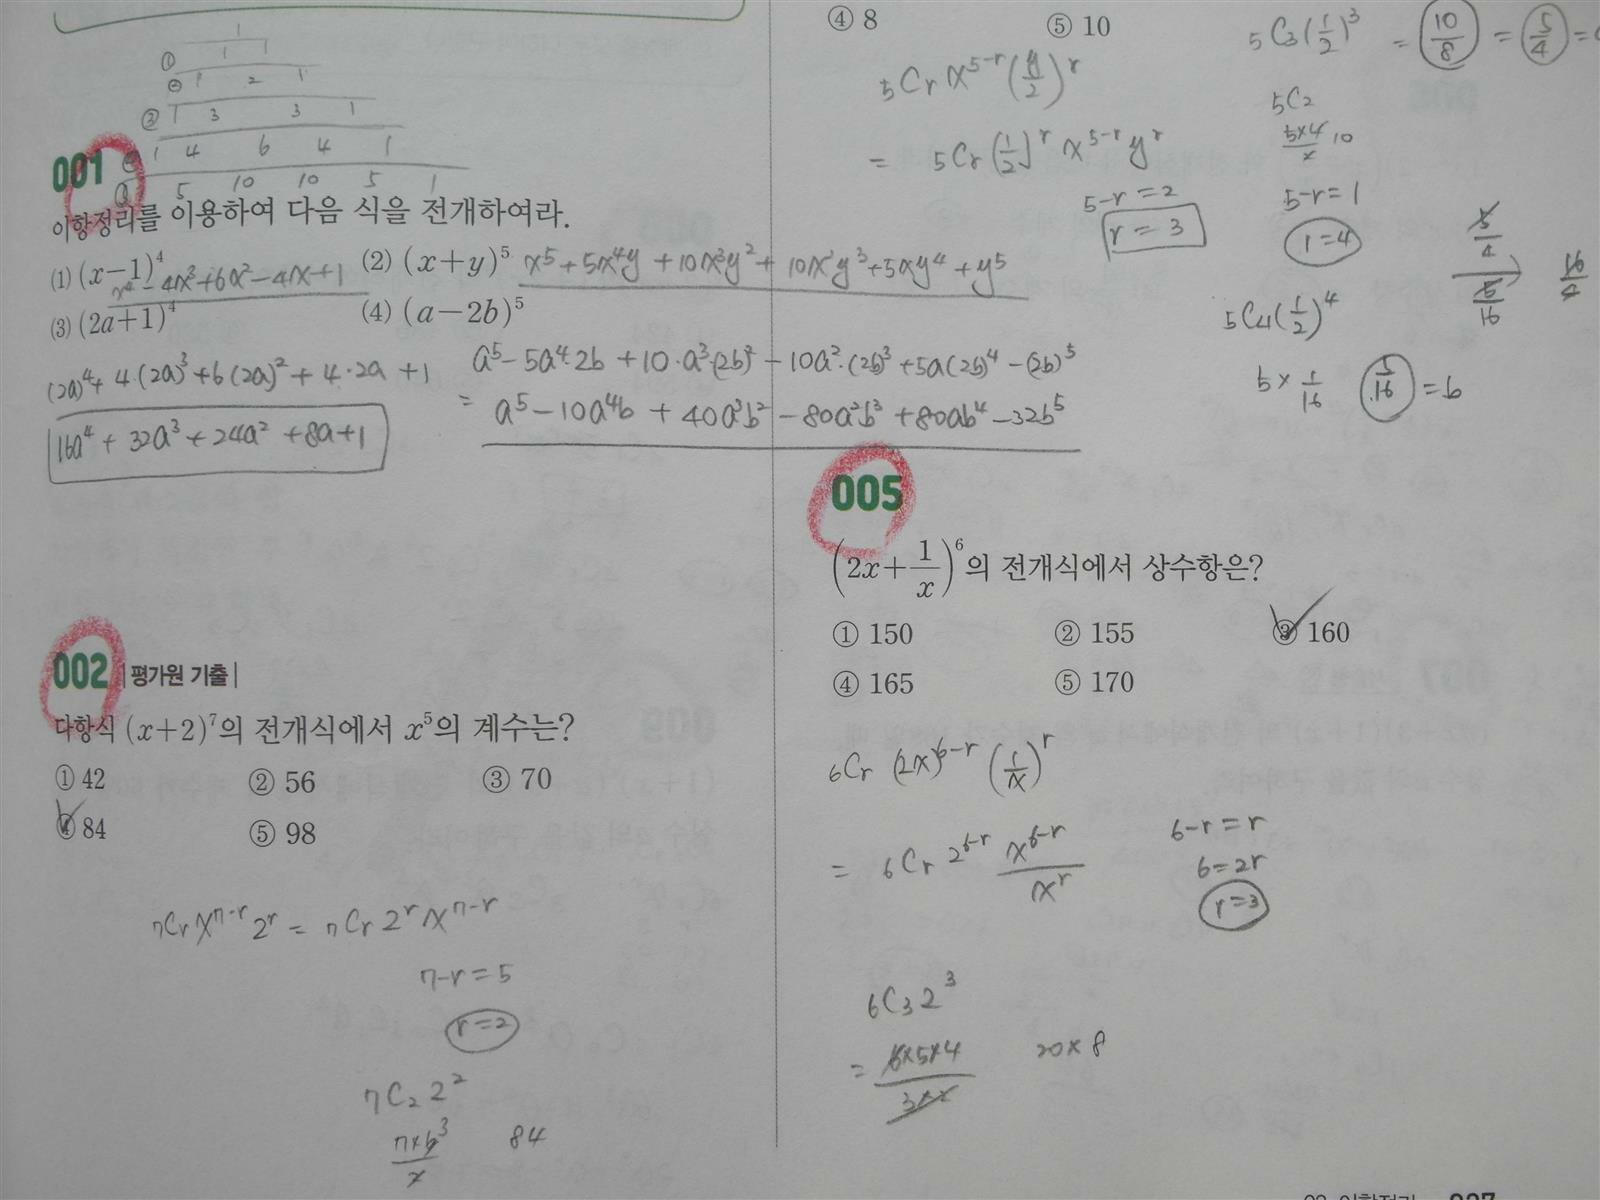 1
① 1 1
② 1 2 1
③ 1 3 3 1
1 4 6 4 1
5 10 10 5 1
001
이항정리를 이용하여 다음 식을 전개하여라.
(1) (x-1)⁴ (2) (x+y)⁵ x⁵+5x⁴y+10x³y²+10x²y³+5xy⁴+y⁵
x⁴-4x³+6x²-4x+1
(3) (2a+1)⁴ (4) (a-2b)⁵
(2a)⁴+4·(2a)³+6(2a)²+4·2a+1
16a⁴+32a³+24a²+8a+1
a⁵-5a⁴·2b+10·a³·(2b)²-10a²·(2b)³+5a(2b)⁴-(2b)⁵
= a⁵-10a⁴b+40a³b²-80a²b³+80ab⁴-32b⁵
002 |평가원 기출|
다항식 (x+2)⁷의 전개식에서 x⁵의 계수는?
① 42 ② 56 ③ 70
④ 84 ⑤ 98
₇Cᵣx⁷⁻ʳ2ʳ = ₇Cᵣ2ʳx⁷⁻ʳ
7-r=5
r=2
₇C₂2²
7×6 3
84
④ 8 ⑤ 10
₅Cᵣx⁵⁻ʳ(y/2)ʳ
= ₅Cᵣ(1/2)ʳx⁵⁻ʳyʳ
5-r=2
r=3
₅C₃(1/2)³ = 10/8 = 5/4 =
₅C₂
5×4 10
5-r=1
r=4
₅C₄(1/2)⁴
5×1/16 5/16 = b
5/4
5/16
16/4
005
(2x+1/x)⁶의 전개식에서 상수항은?
① 150 ② 155 ③ 160
④ 165 ⑤ 170
₆Cᵣ(2x)⁶⁻ʳ(1/x)ʳ
= ₆Cᵣ2⁶⁻ʳ x⁶⁻ʳ/xʳ
6-r=r
6=2r
r=3
₆C₃2³
= 6×5×4/3×2 20×8